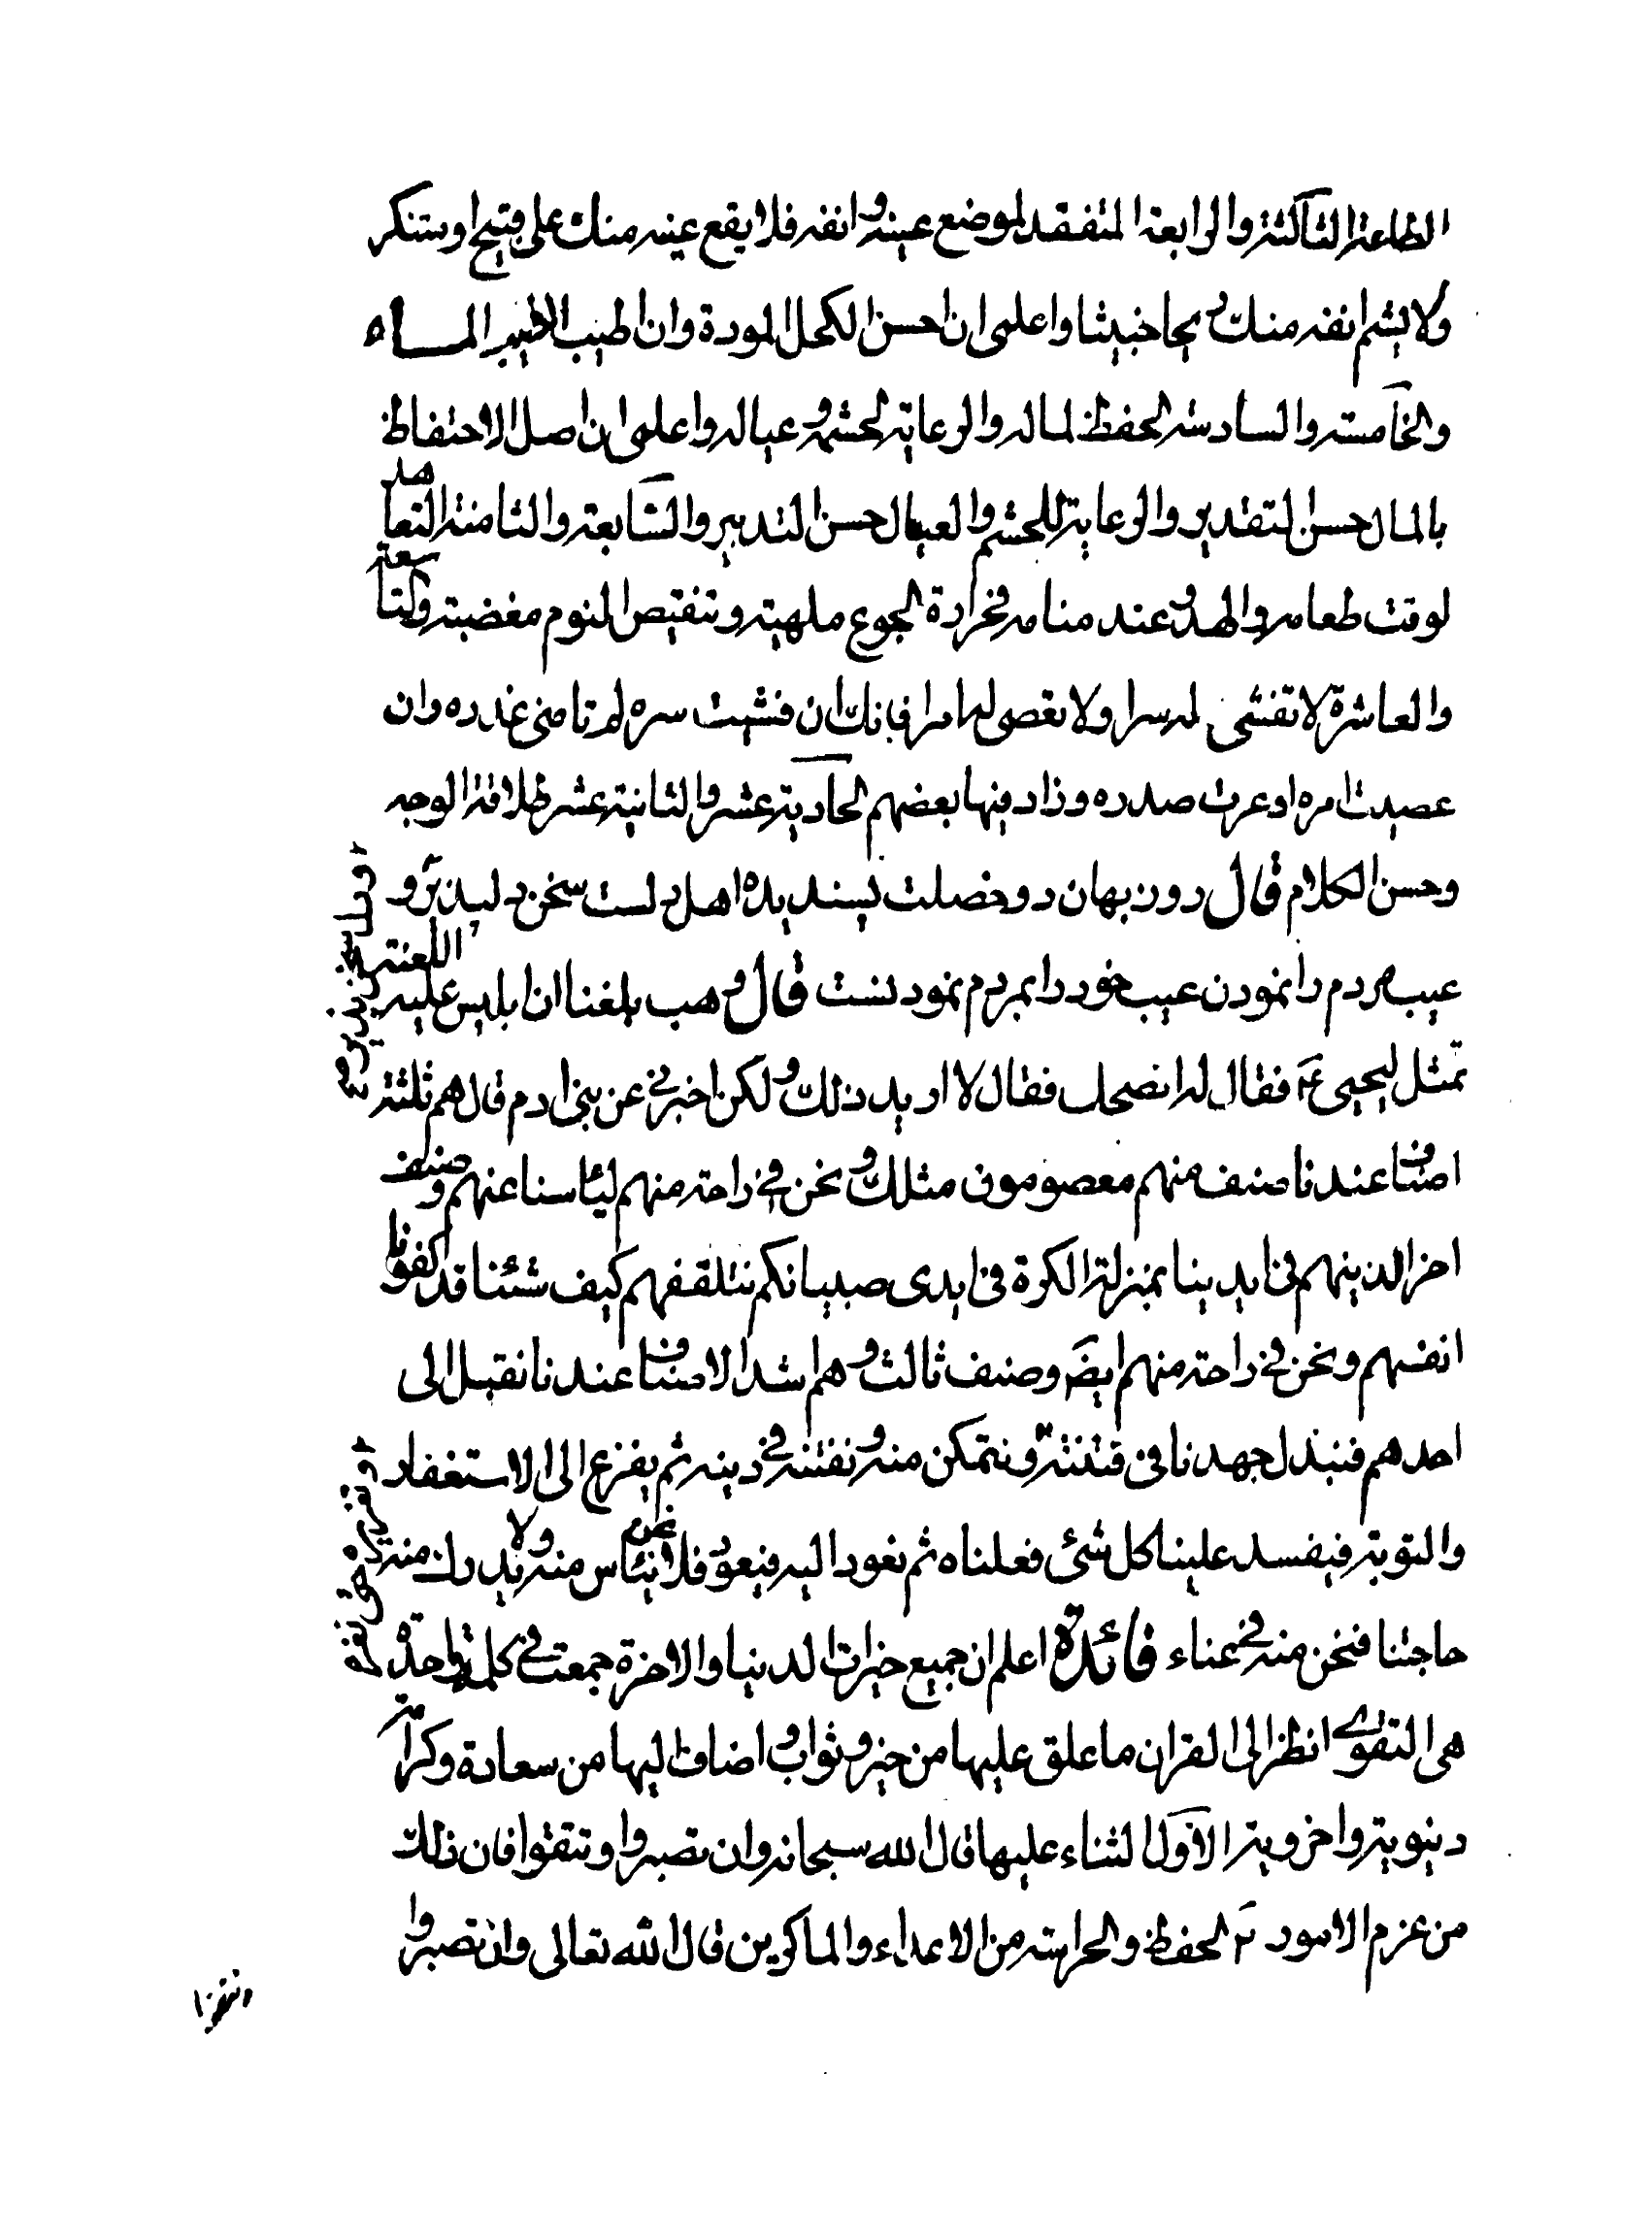 الطاعة الثالثة والرابعة المتفقد لموضع عينه وانفه فلا يقع عينه منك على قبيح او يستنكر
ولا يشم انفه منك ريحا خبيثا واعلمى ان احسن الكحل المودة وان اطيب الطيب الماء
والخامسة والسادسة الحفظ لماله والرعاية لحشمه وعياله واعلمى ان اصل الاحتفاظ
بالمال حسن التقدير والرعاية للحشم والعيال حسن التدبير والسابعة والثامنة التعاهد
لوقت طعامه والهدو عند منامه فحرارة الجوع ملهبة وتنقيص النوم مغضبة والتاسعة
والعاشرة لا تفشى له سرا ولا تعصى له امرا فانك ان فشيت سره لم تامنى غدره وان
عصيت امره اوغرت صدره وزاد فيها بعضهم الحادية عشر والثانية عشر طلاقة الوجه
وحسن الكلام قال روزبهان دو خصلت پسنديده اهل دلست سخن دلپذير و
عيب مردم را نمودن عيب خود را بمردم نمودنست قال وهب بلغنا ان ابليس عليه اللعنة
تمثل ليحيى ع فقال له انصحك فقال لا اريد ذلك ولكن اخبرنى عن بنى ادم قال هم ثلثة
اصناف عندنا صنف منهم معصومون مثلك ونحن فى راحة منهم لياسنا عنهم وصنف
اخر الدينهم فى ايدينا بمنزلة الكرة فى ايدى صبيانكم نتلقفهم كيف شئنا قد كفونا
انفسهم ونحن فى راحة منهم ايضَ وصنف ثالث وهم اشد الاصناف عندنا نقبل الى
احدهم فنبذل جهدنا فى فتنته ونتمكن منه ونفتنه فى دينه ثم يفزع الى الاستغفار
والتوبة فيفسد علينا كل شئ فعلناه ثم نعود اليه فيعود فلا نحن نيئاس منه ولا ندرك منه
حاجتنا فنحن منه فى عناء فائدة اعلم ان جميع خيرات الدنيا والاخرة جمعت فى كلمة واحدة
هى التقوى انظر الى القران ما علق عليها من خير وثواب واضاف اليها من سعادة وكرامة
دنيوية واخروية الاول الثناء عليها قال الله سبحانه وان تصبروا وتتقوا فان ذلك
من عزم الامور ٢ الحفظ والحراسة من الاعداء والماكرين قال الله تعالى وان تصبروا
وتتقوا